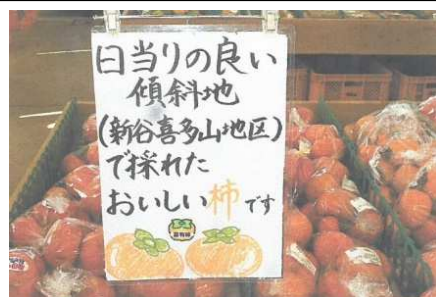 日当りの良い
傾斜地
(新谷喜多山地区)
で採れた
おいしい柿です